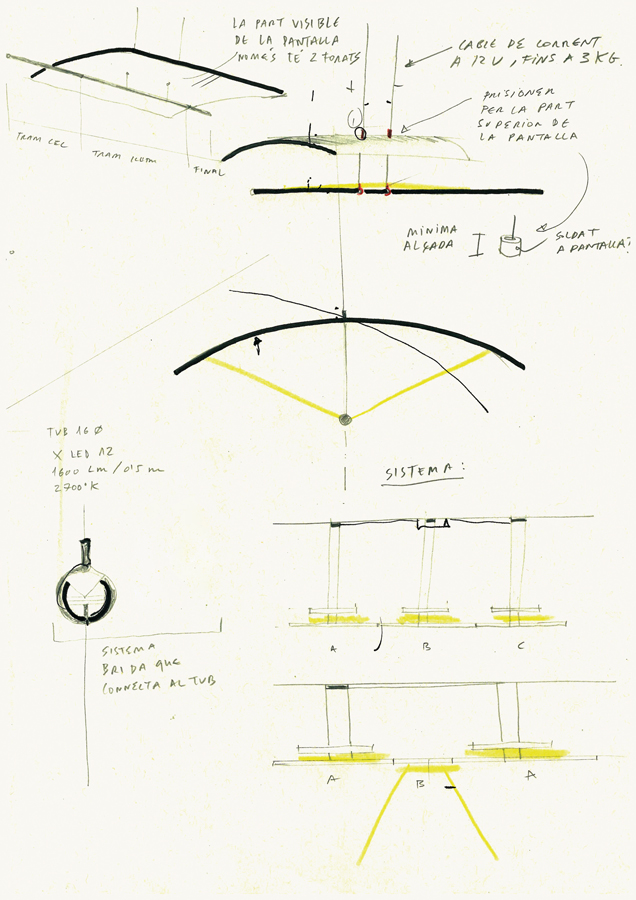 LA PART VISIBLE
DE LA PANTALLA
NOMÉS TÉ 2 FORATS
CABLE DE CORRENT
A 12V, FINS A 3 KG.
PRISIONER
PER LA PART
SUPERIOR DE
LA PANTALLA
TRAM CEC
TRAM ILLUM
FINAL
1
MINIMA
ALÇADA
SOLDAT
A PANTALLA
TUB 16 Ø
X LED 12
1600 Lm/0'5 m
2700°K
SISTEMA:
A
B
C
SISTEMA
BRIDA QUE
CONNECTA AL TUB
A
B
A